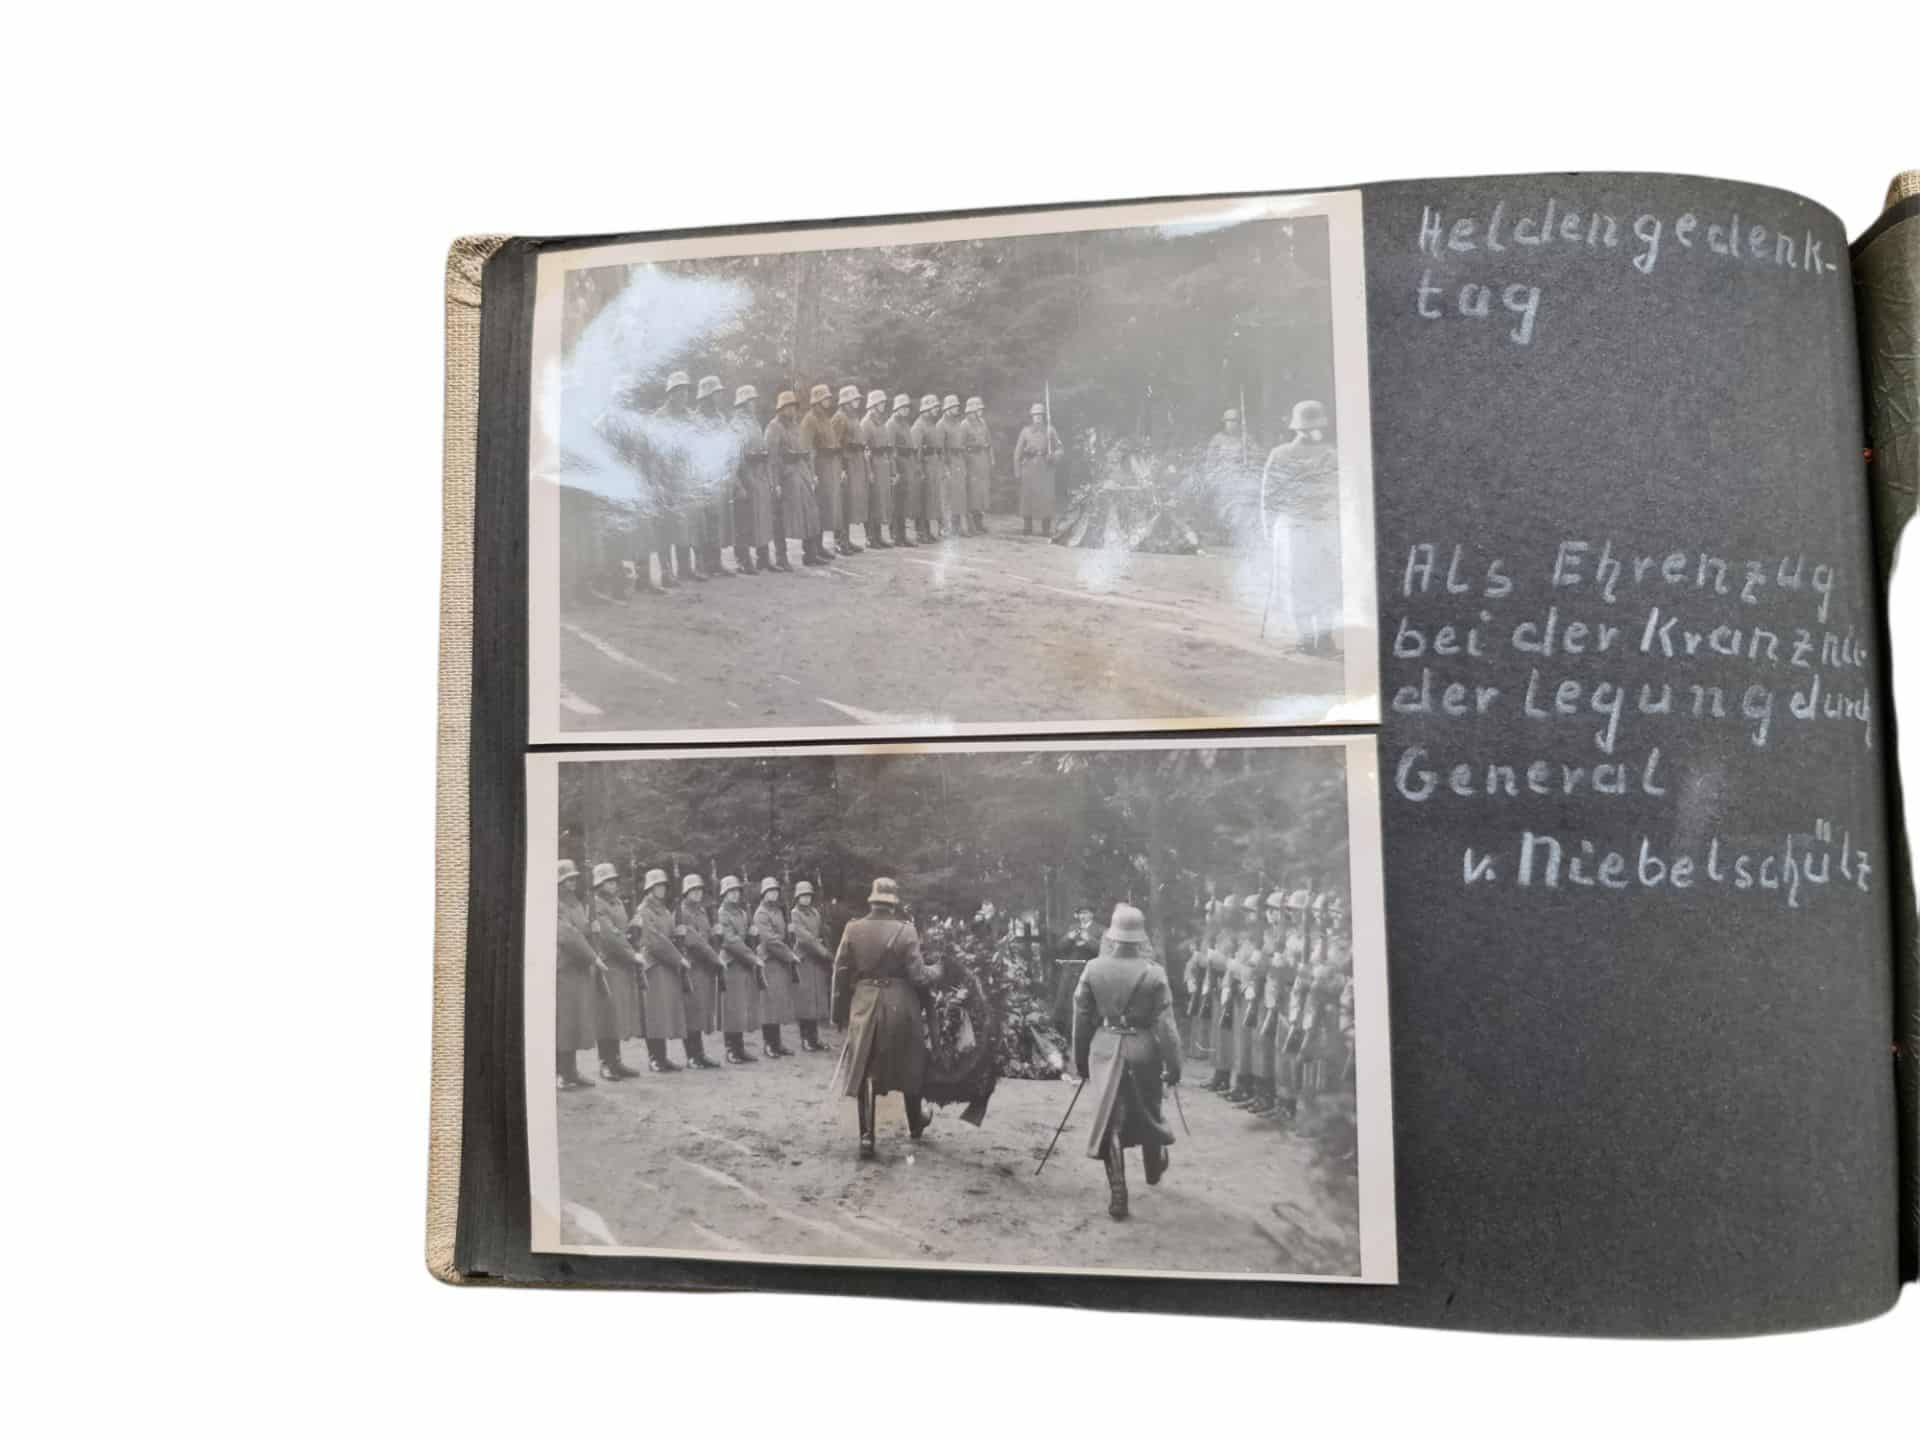 Heldengedenk-
tag
Als Ehrenzug
bei der Kranznie-
der legung durch
General
v. Niebelschülz